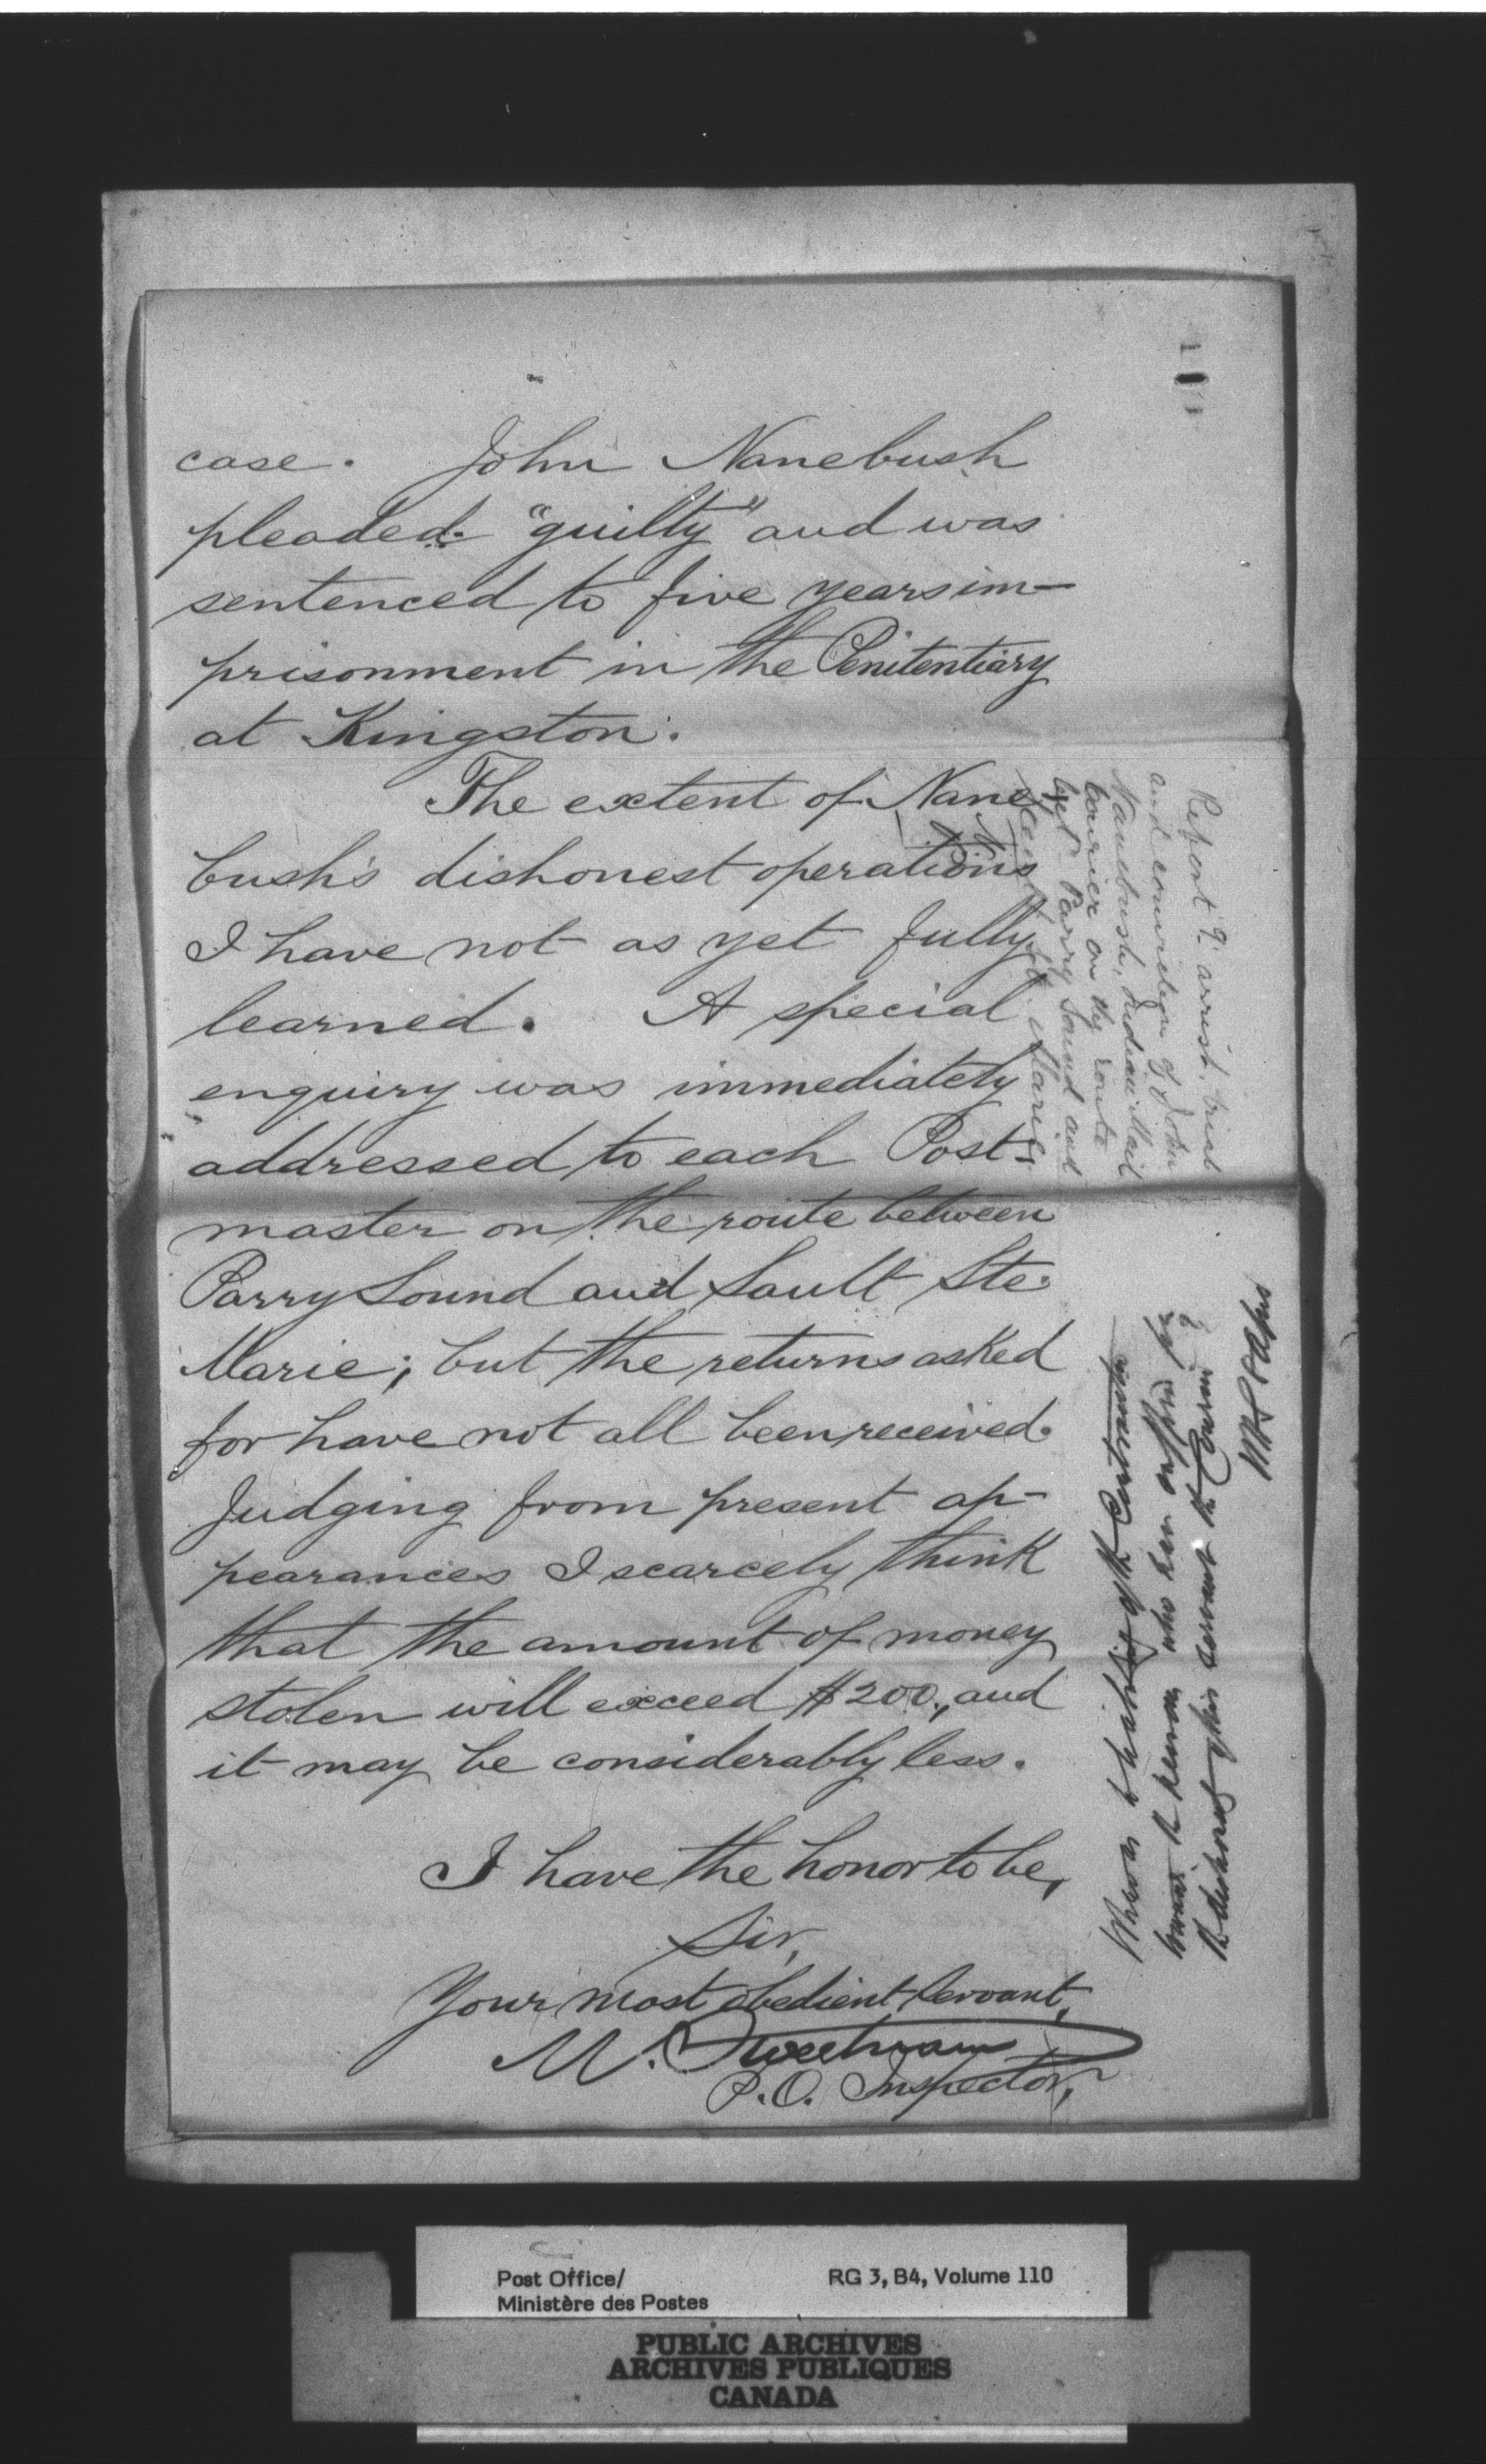 case. John Nanebush
pleaded "guilty" and was
sentenced to five years im-
prisonment in the Penitentiary
at Kingston.
The extent of Nane
bush's dishonest operations
I have not as yet fully
learned. A special
enquiry was immediately
addressed to each Post-
master on the route between
Parry Sound and Sault Ste.
Marie; but the returns asked
for have not all been received.
Judging from present ap-
pearances I scarcely think
that the amount of money
stolen will exceed $200., and
it may be considerably less.
I have the honor to be,
Sir,
Your most obedient Servant,
M. Sweetnam
P.O. Inspector,
Report of arrest, trial
and conviction of John
Nanebush, Indian Mail
Courier on the route
bet Parry Sound and
Sault Ste. Marie
the Contractor
who have suffered for
the dishonesty of his servant the Courier?
Post Office/
Ministère des Postes
RG 3, B4, Volume 110
PUBLIC ARCHIVES
ARCHIVES PUBLIQUES
CANADA